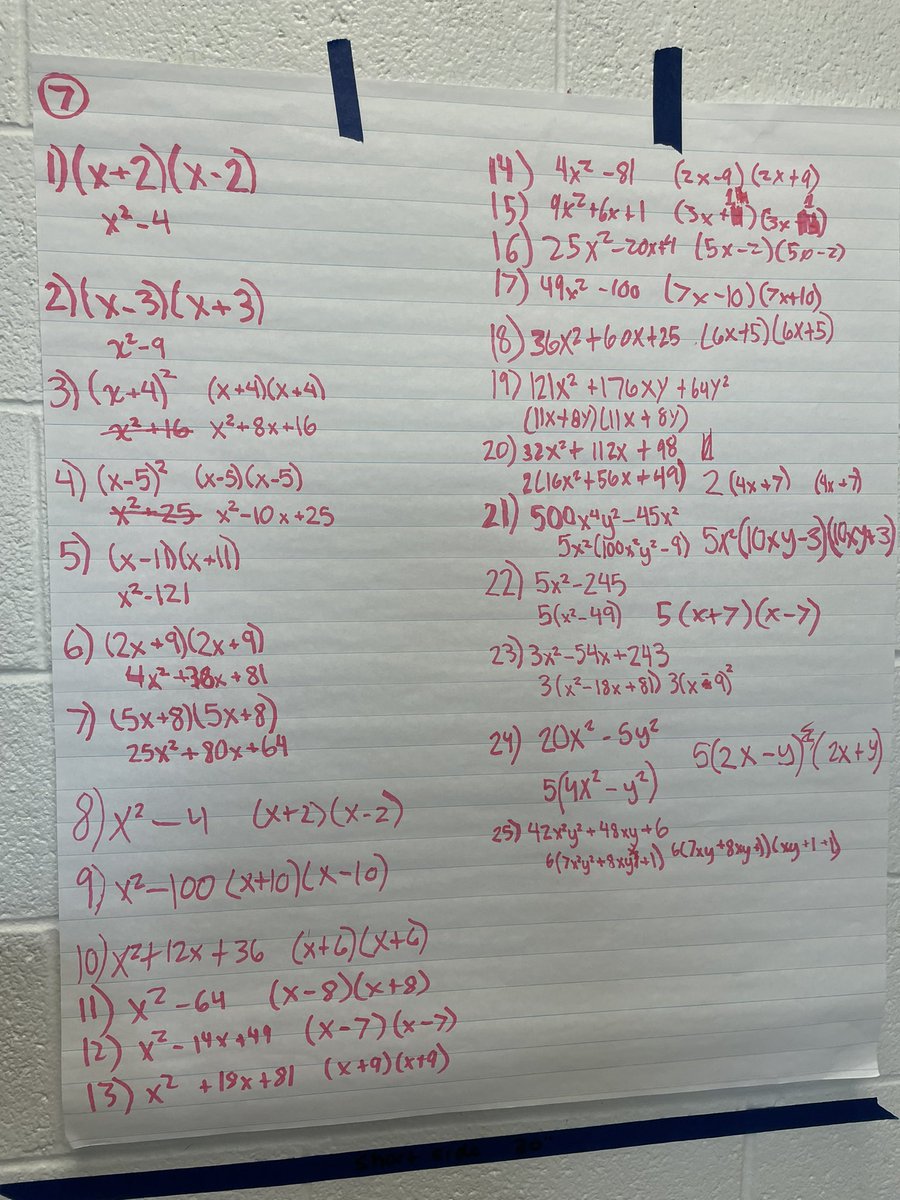 7
1) (x+2)(x-2)
x² - 4
2) (x-3)(x+3)
x²-9
3) (x+4)² (x+4)(x+4)
x²+16 x²+8x+16
4) (x-5)² (x-5)(x-5)
x²+25 x²-10x+25
5) (x-11)(x+11)
x²-121
6) (2x+9)(2x+9)
4x²+36x+81
7) (5x+8)(5x+8)
25x²+80x+64
8) x² - 4 (x+2)(x-2)
9) x²-100 (x+10)(x-10)
10) x²+12x+36 (x+6)(x+6)
11) x²-64 (x-8)(x+8)
12) x²-14x+49 (x-7)(x-7)
13) x² +18x+81 (x+9)(x+9)
14) 4x²-81 (2x-9)(2x+9)
15) 9x²+6x+1 (3x+1)(3x+1)
16) 25x²-20x+4 (5x-2)(5x-2)
17) 49x²-100 (7x-10)(7x+10)
18) 36x²+60x+25 (6x+5)(6x+5)
19) 121x²+176xy+64y²
(11x+8y)(11x+8y)
20) 32x²+112x+98
2(16x²+56x+49) 2(4x+7) (4x+7)
21) 500x⁴y²-45x²
5x²(100x²y²-9) 5x²(10xy-3)(10xy+3)
22) 5x²-245
5(x²-49) 5(x+7)(x-7)
23) 3x²-54x+243
3(x²-18x+81) 3(x-9)²
24) 20x²-5y²
5(4x²-y²) 5(2x-y)(2x+y)
25) 42x²y²+48xy+6
6(7x²y²+8xy+1) 6(7xy+8xy+1)(xy+1+1)